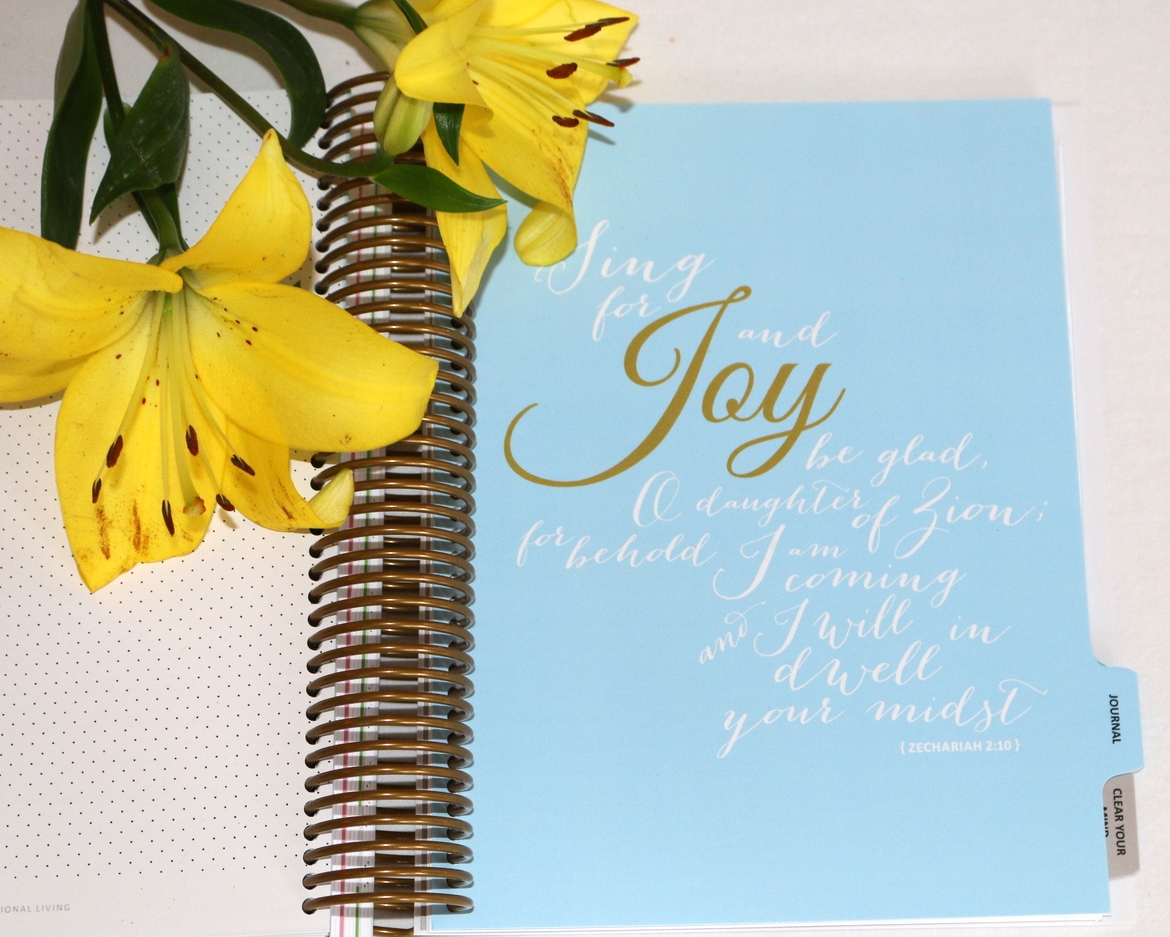 Sing
for Joy and
be glad,
O daughter of Zion;
for behold I am
coming
and I will in
dwell
your midst
{ ZECHARIAH 2:10 }
JOURNAL
CLEAR YOUR
MIND
IONAL LIVING